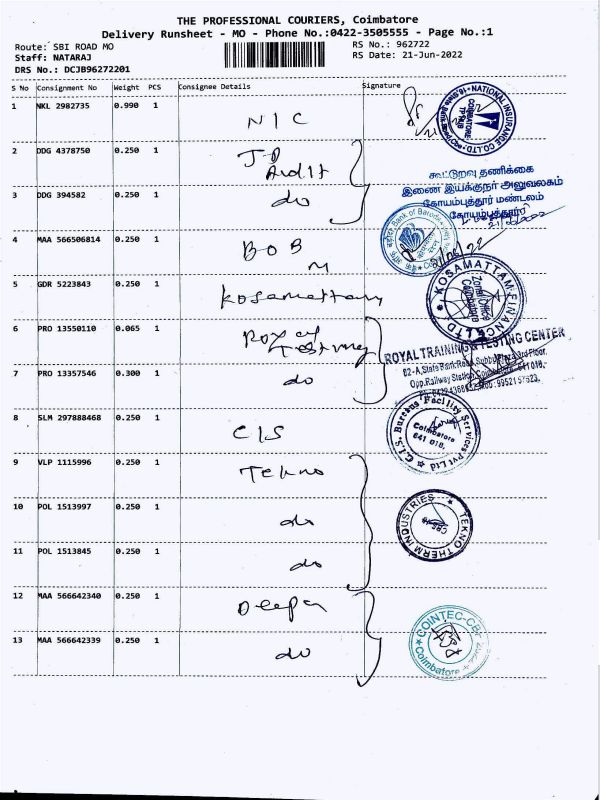 THE PROFESSIONAL COURIERS, Coimbatore
Delivery Runsheet - MO - Phone No.:0422-3505555 - Page No.:1
Route: SBI ROAD MO
RS No.: 962722
Staff: NATARAJ
RS Date: 21-Jun-2022
DRS No.: DCJB96272201
S No Consignment No Weight PCS Consignee Details Signature
1 NKL 2982735 0.990 1 NIC
NATIONAL INSURANCE CO.LTD
COIMBATORE
2 DDG 4378750 0.250 1 JD Audit
கூட்டுறவு தணிக்கை
இணை இயக்குநர் அலுவலகம்
கோயம்புத்தூர் மண்டலம்
கோயம்புத்தூர்
3 DDG 394582 0.250 1 do
Bank of Baroda
4 MAA 566506814 0.250 1 BOB
KOSAMATTAM FINANCE LTD
Zonal Office
Coimbatore
5 GDR 5223843 0.250 1 Kosamattam
6 PRO 13550110 0.065 1 Royal Testing
ROYAL TRAINING & TESTING CENTER
82-A, State Bank Road, Subbu Plaza 3rd Floor,
Opp. Railway Station, Coimbatore - 641 018,
7 PRO 13357546 0.300 1 do
8 SLM 297888468 0.250 1 CIS
C.I.S. Bureaus Facility Services Pvt Ltd
Coimbatore
641 018.
9 VLP 1115996 0.250 1 Tekno
10 POL 1513997 0.250 1 do
TEKNO THERM INDUSTRIES
CBE
11 POL 1513845 0.250 1 do
12 MAA 566642340 0.250 1 Deepa
COINTEC-CBE
Coimbatore
13 MAA 566642339 0.250 1 do